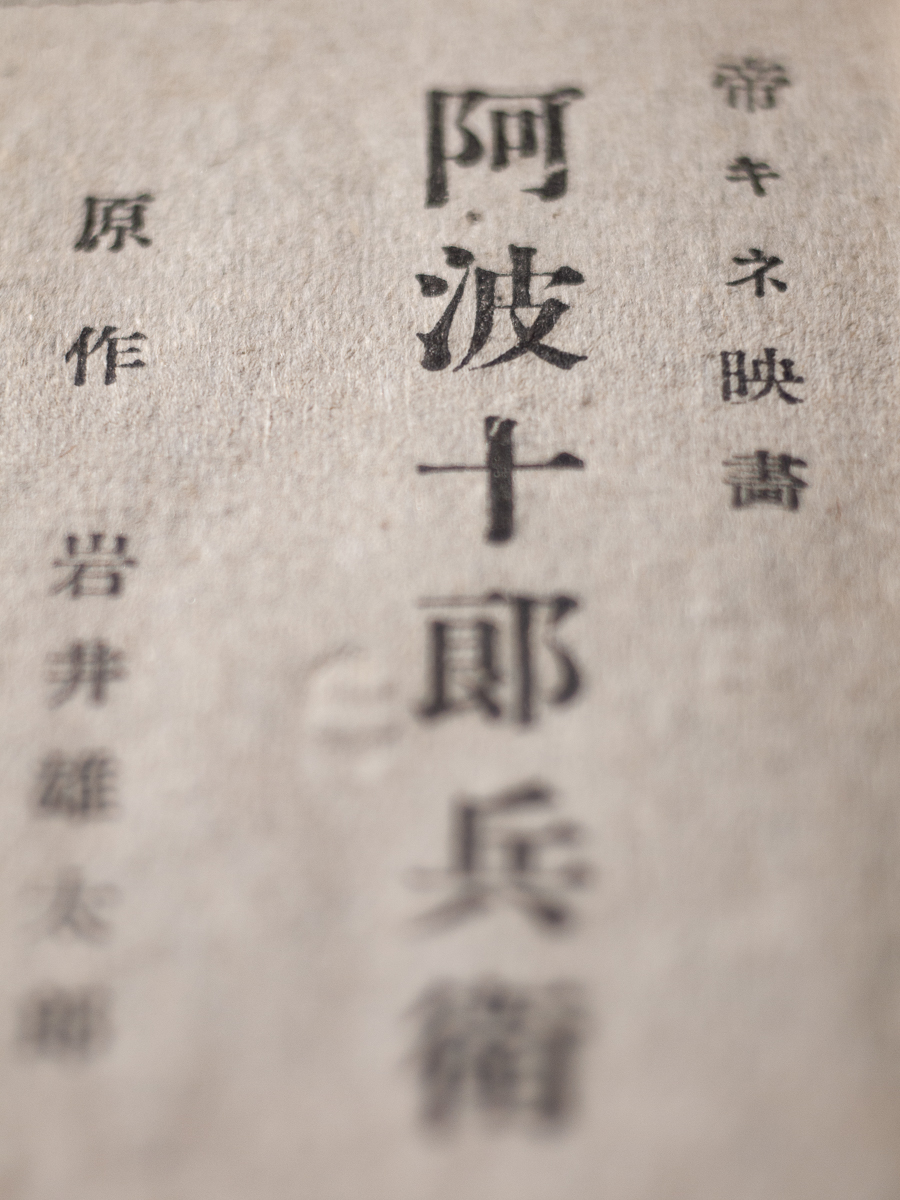 帝キネ映畫
阿波十郎兵衛
原作　岩井雄太郎